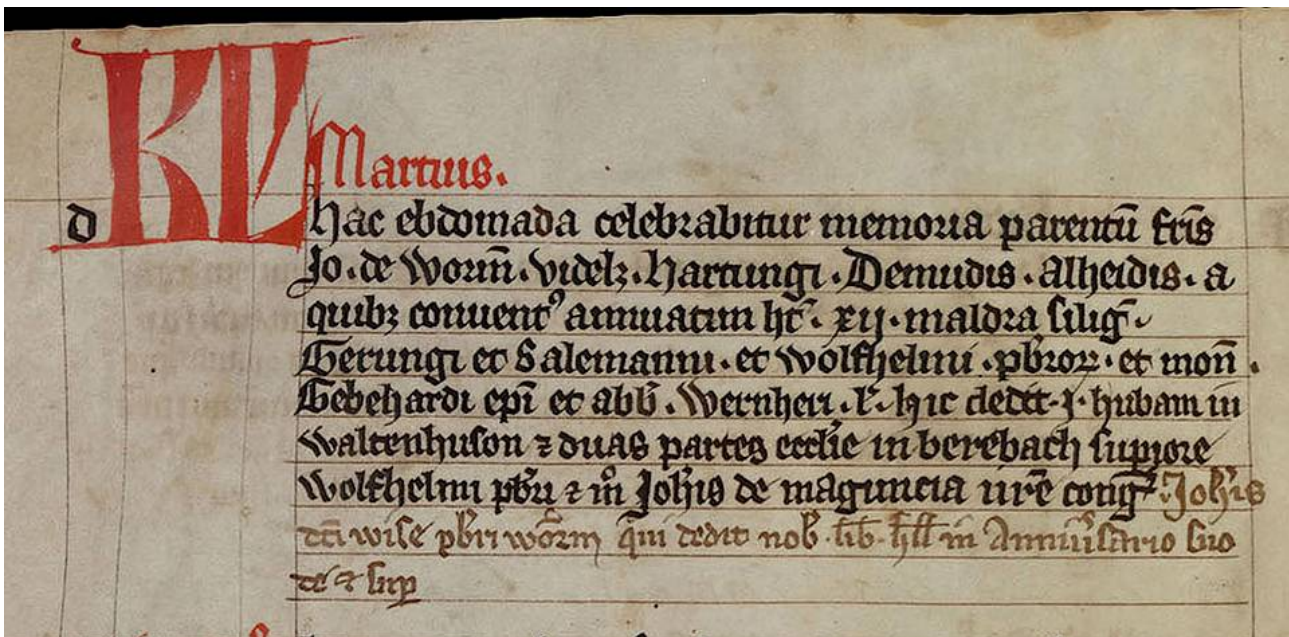 KL
Martius.
d hac ebdomada celebrabitur memoria parentū fr̄is
Jo. de Worm̄. videlꝫ. Hartungi. Demudis. Alheidis. a
quibꝫ conuentꝰ annuatim hꝫ. xij. maldra siliḡ.
Gerungi et Salemanni. et Wolfhelmi. pb̄roꝝ. et mon̄.
Gebehardi ep̄i et abb̄. Wernheri. l'. hic dedit. j. hubam in
Waltenhuson ⁊ duas partes eccl̄ie in berebach supiore
Wolfhelmi pb̄ri ⁊ m̄ Joh̄is de maguncia nr̄e conḡ. Joh̄is
dc̄i wise pb̄ri worm̄ qui dedit nob̄. lib. hll̄ in Anniūsario suo
de ⁊ sup